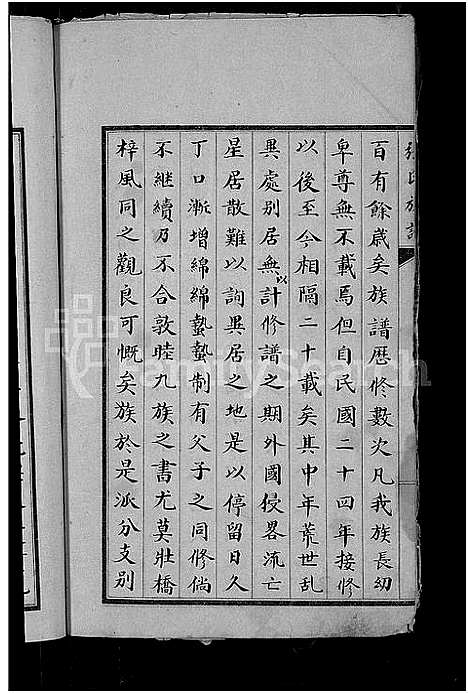 張氏族譜
百有餘歲矣族譜歷修數次凡我族長幼
卑尊無不載焉但自民國二十四年接修
以後至今相隔二十載矣其中年荒世亂
異處別居無以計修譜之期外國侵畧流亡
星居散難以詢異居之地是以停留日久
丁口漸增綿綿蟄蟄制有父子之同修倘
不繼續乃不合敦睦九族之書尤莫壯橋
梓風同之觀良可慨矣族於是派分支別
FamilySearch